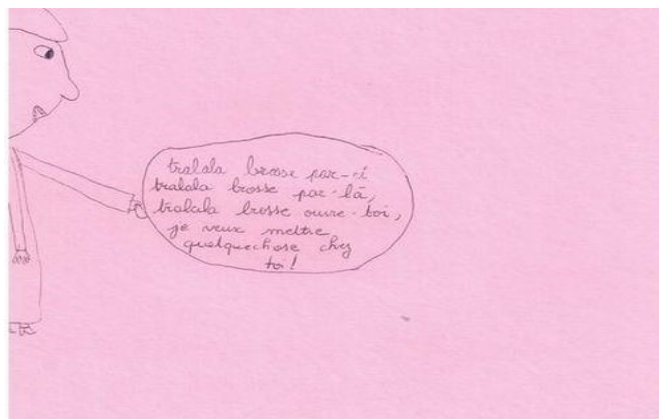 tralala brosse par-ci
tralala brosse par-là,
tralala brosse ouvre-toi,
je veux mettre
quelquechose chez
toi!